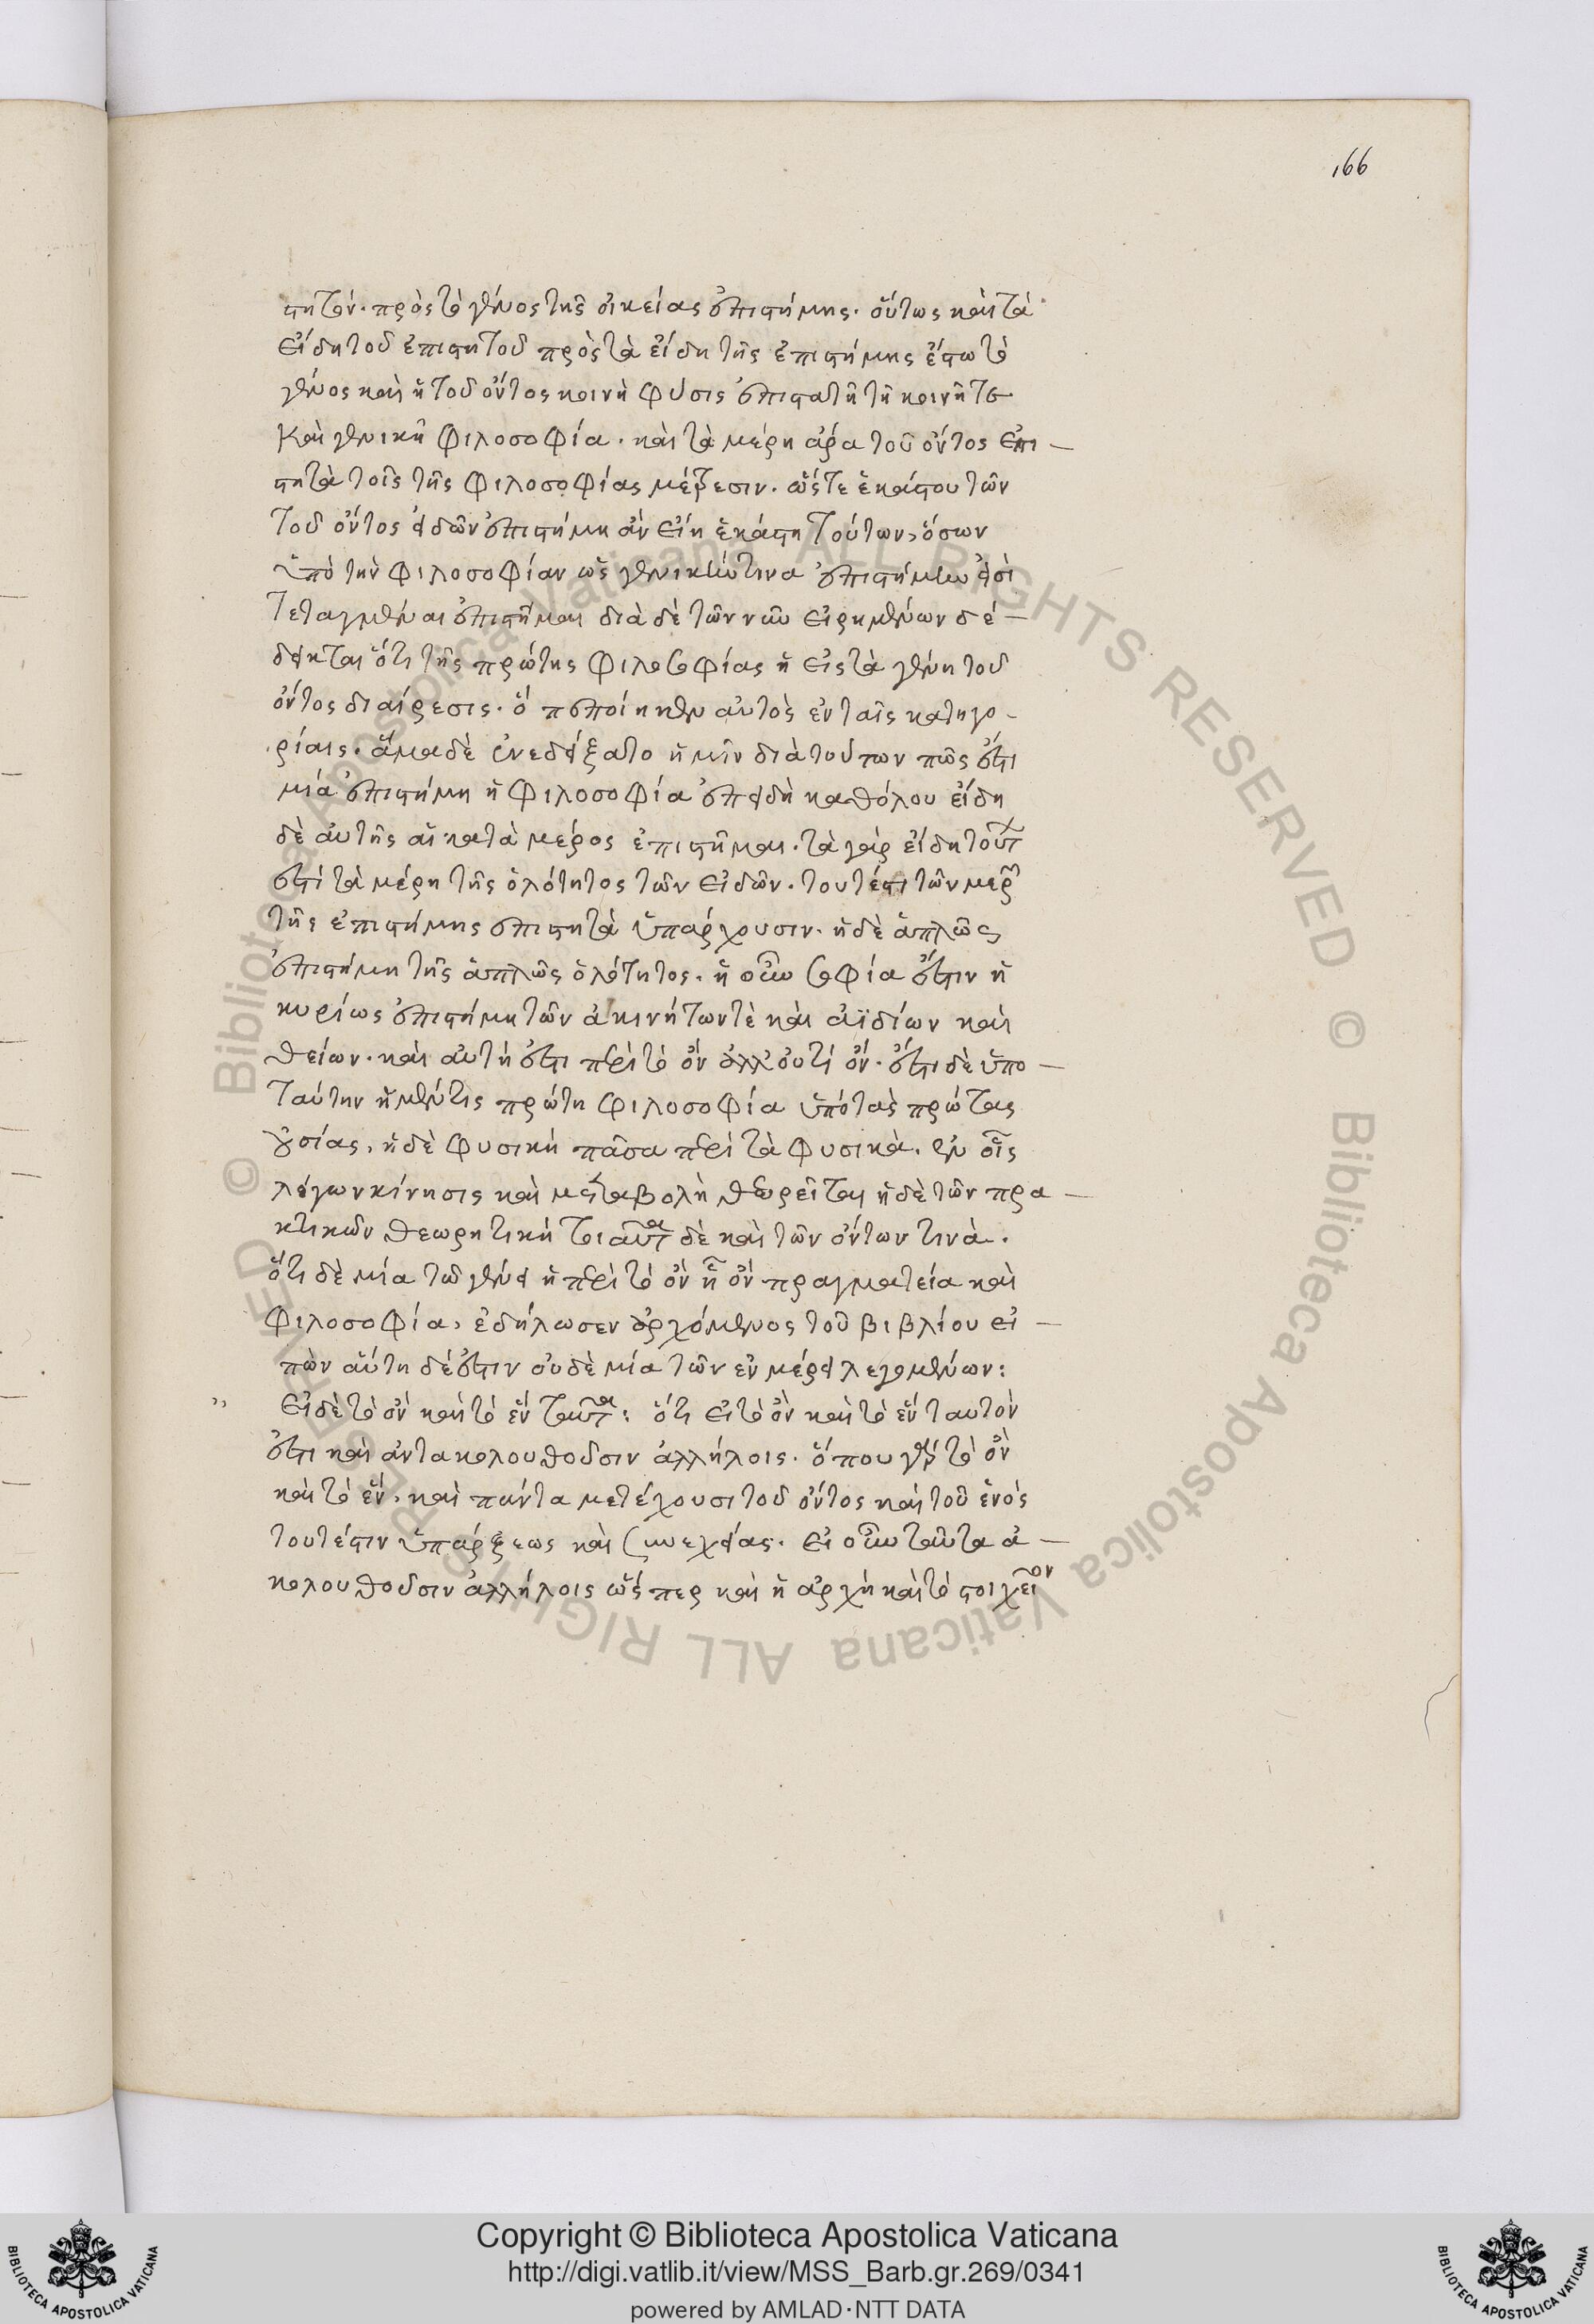 166
στητόν. πρὸς τὸ γένος τῆς οἰκείας ἐπιστήμης. οὕτως καὶ τὰ
εἴδη τοῦ ἐπιστητοῦ πρὸς τὰ εἴδη τῆς ἐπιστήμης ἔστω τὸ
γένος καὶ ἡ τοῦ ὄντος κοινὴ φύσις ἐπιστατῆ τῆ κοινῆ τε
καὶ γενικῆ φιλοσοφία. καὶ τὰ μέρη ἄρα τοῦ ὄντος ἐπι–
στητὰ τοῖς τῆς φιλοσοφίας μέρεσιν. ὥστε ἑκάστου τῶν
τοῦ ὄντος εἰδῶν ἐπιστήμη ἂν εἴη ἑκάστη τούτων, ὅσων
ὑπὸ τὴν φιλοσοφίαν ὡς γενικήν τινα ἐπιστήμην εἰσὶ
τεταγμέναι ἐπιστῆμαι διὰ δὲ τῶν νῦν εἰρημένων δέ–
δεικται ὅτι τῆς πρώτης φιλοσοφίας ἡ εἰς τὰ γένη τοῦ
ὄντος διαίρεσις. ὃ πεποίηκεν αὐτὸς ἐν ταῖς κατηγο–
ρίαις. ἅμα δὲ ἐνεδείξατο ἡμῖν διὰ τούτων πῶς ἐστι
μία ἐπιστήμη ἡ φιλοσοφία ἐπειδὴ καθόλου εἴδη
δὲ αὐτῆς αἱ κατὰ μέρος ἐπιστῆμαι. τὰ γὰρ εἴδη τουτ
ἐστὶ τὰ μέρη τῆς ὁλότητος τῶν εἰδῶν. τουτέστι τῶν μερῶν
τῆς ἐπιστήμης ἐπιστητὰ ὑπάρχουσιν. ἡ δὲ ἁπλῶς
ἐπιστήμη τῆς ἁπλῶς ὁλότητος. ἡ οὖν σοφία ἐστιν ἡ
κυρίως ἐπιστήμη τῶν ἀκινήτων τὲ καὶ ἀϊδίων καὶ
θείων. καὶ αὐτή ἐστι περὶ τὸ ὂν ἀλλ' οὐ τὶ ὄν. ἔστι δὲ ὑπο–
ταύτην ἡ μέν τις πρώτη φιλοσοφία ὑπὸ τὰς πρώτας
οὐσίας, ἡ δὲ φυσικὴ πᾶσα περὶ τὰ φυσικὰ. ἐν οἷς
λέγων κίνησις καὶ μεταβολὴ θεωρεῖται ἡ δὲ τῶν πρα–
κτικῶν θεωρητική τοιαῦτα δὲ καὶ τῶν ὄντων τινὰ.
ὅτι δὲ μία τῶ γένει ἡ περὶ τὸ ὂν ἧ ὂν πραγματεία καὶ
φιλοσοφία, ἐδήλωσεν ἀρχόμενος τοῦ βιβλίου εἰ–
πὼν αὕτη δέ ἐστιν οὐδὲ μία τῶν ἐν μέρει λεγομένων:
" Εἰ δὲ τὸ ὂν καὶ τὸ ἓν ταῦτα: ὅτι εἰ τὸ ὂν καὶ τὸ ἓν ταυτόν
ἐστι καὶ ἀντακολουθοῦσιν ἀλλήλοις. ὅπου γὰρ τὸ ὂν
καὶ τὸ ἕν. καὶ πάντα μετέχουσι τοῦ ὄντος καὶ τοῦ ἑνός
τουτέστιν ὑπάρξεως καὶ συνεχείας. εἰ οὖν ταῦτα ἀ–
κολουθοῦσιν ἀλλήλοις ὥσπερ καὶ ἡ ἀρχὴ καὶ τὸ στοιχεῖον
© Biblioteca Apostolica Vaticana ALL RIGHTS RESERVED © Biblioteca Apostolica Vaticana ALL RIGHTS RESERVED
Copyright © Biblioteca Apostolica Vaticana
http://digi.vatlib.it/view/MSS_Barb.gr.269/0341
powered by AMLAD·NTT DATA
BIBLIOTECA APOSTOLICA VATICANA
BIBLIOTECA APOSTOLICA VATICANA